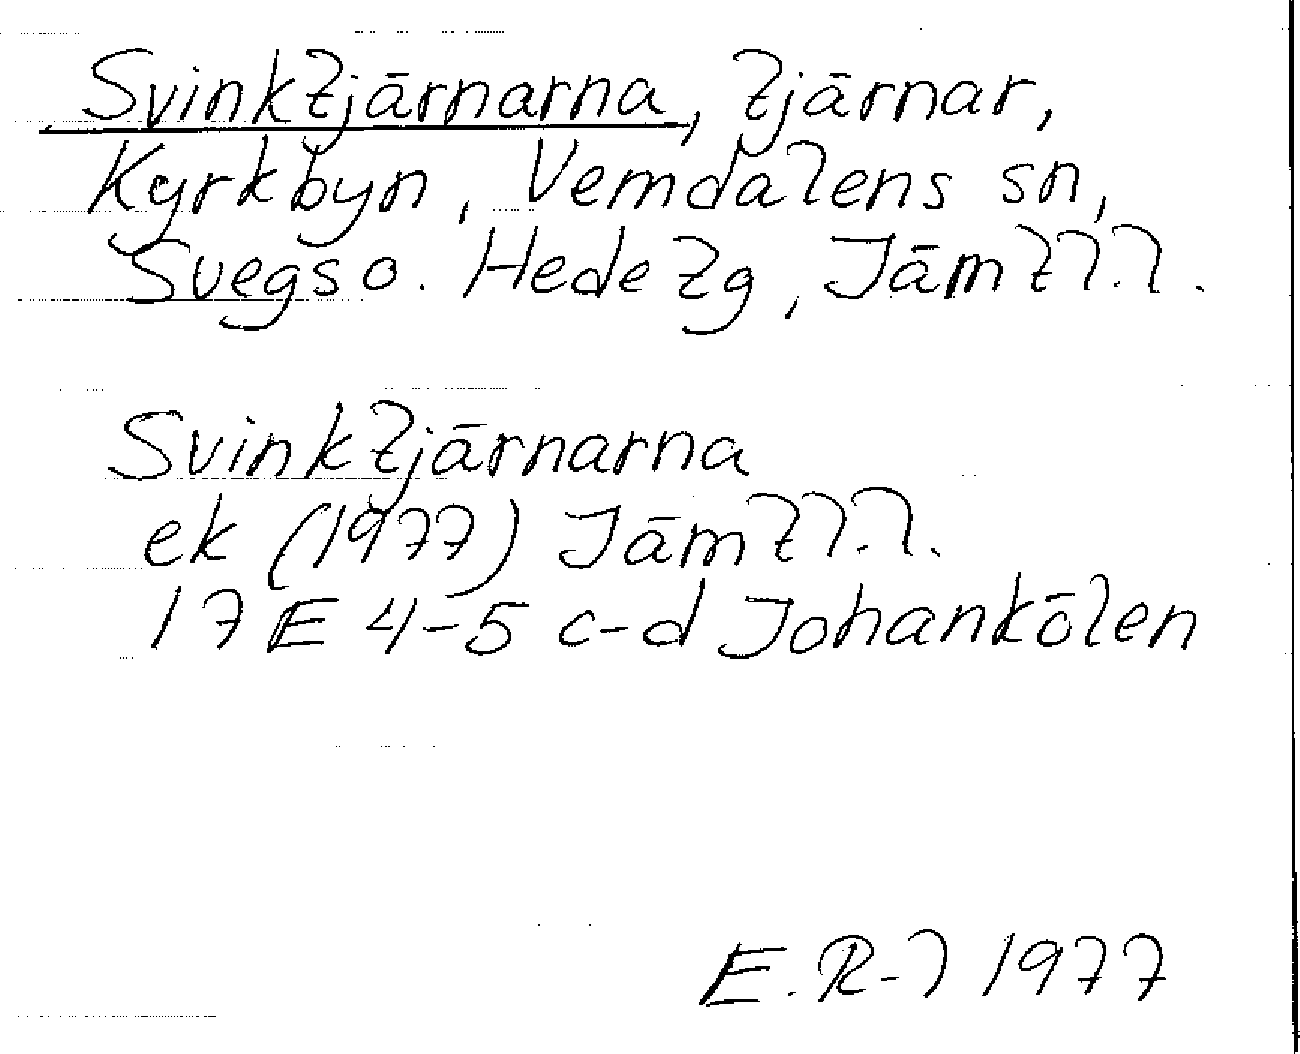 Svinktjärnarna, tjärnar,
Kyrkbyn, Vemdalens sn,
Svegs o. Hede tg, Jämtl.l.
Svinktjärnarna
ek (1977) Jämtl.l.
17 E 4-5 c-d Johankölen
E. R-l 1977